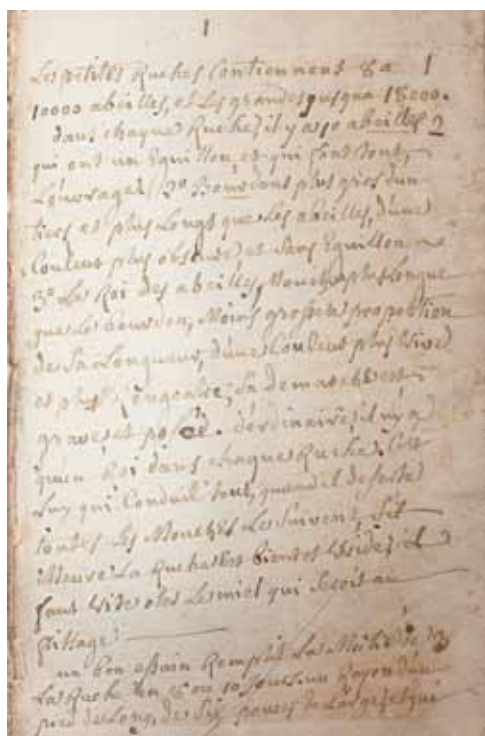 1
Les petites Ruches Contiennent 8 a 1
10000 abeilles, et Les grandes jusqua 18000.
dans chaque Ruche il y a 1º abeilles 2
qui ont un Eguillon, et qui font tout
L'ouvrage / 2º Bourdons plus gros d'un
tiers et plus Longs que Les abeilles, d'une
Couleur plus obscure et sans Eguillon
3º Le Roi des abeilles, Mouche plus Longue
que Le bourdon, Moins grosse a proportion
de Sa Longueur, d'une Couleur plus Vive
et plus Sa demarche est
grave et posée. d'ordinaire il n'y a
qu'un Roi dans chaque Ruche. C'est
Luy qui Conduit tout, quand il deserte
toutes Les Mouches Le Suivent, S'il
Meurt La Ruche est bientot Vuide; il
faut Vite oter Le miel qui Seroit au
pillage
un bon essain Remplit La Moitié de
La Ruche en 8 ou 10 Jours, un Rayon d'un
pied de Long, de Six pouces de Large